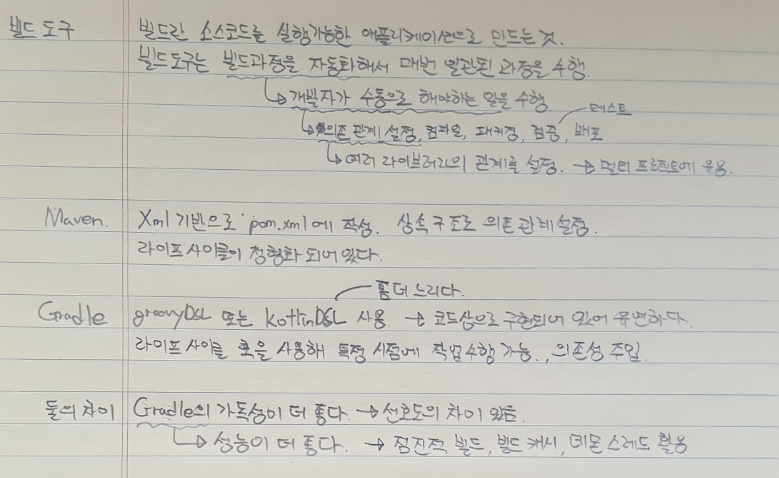 빌드 도구 빌드란 소스코드를 실행가능한 애플리케이션으로 만드는 것.
빌드도구는 빌드과정을 자동화해서 매번 일관된 과정을 수행.
↳ 개발자가 수동으로 해야하는 일을 수행.
테스트
↳ 의존 관계 설정, 컴파일, 패키징, 검증, 배포
↳ 여러 라이브러리의 관계를 설정. → 멀티 프로젝트에 유용.
Maven. Xml 기반으로 pom.xml에 작성. 상속구조로 의존관계설정.
라이프사이클이 정형화 되어있다.
좀 더 느리다.
Gradle groovyDSL 또는 kotlinDSL 사용 → 코드상으로 구현되어 있어 유연하다.
라이프 사이클 훅을 사용해 특정 시점에 작업수행 가능., 의존성 주입.
둘의 차이 Gradle의 가독성이 더 좋다. → 선호도의 차이 있음.
↳ 성능이 더 좋다. → 점진적 빌드, 빌드 캐시, 데몬 스레드 활용